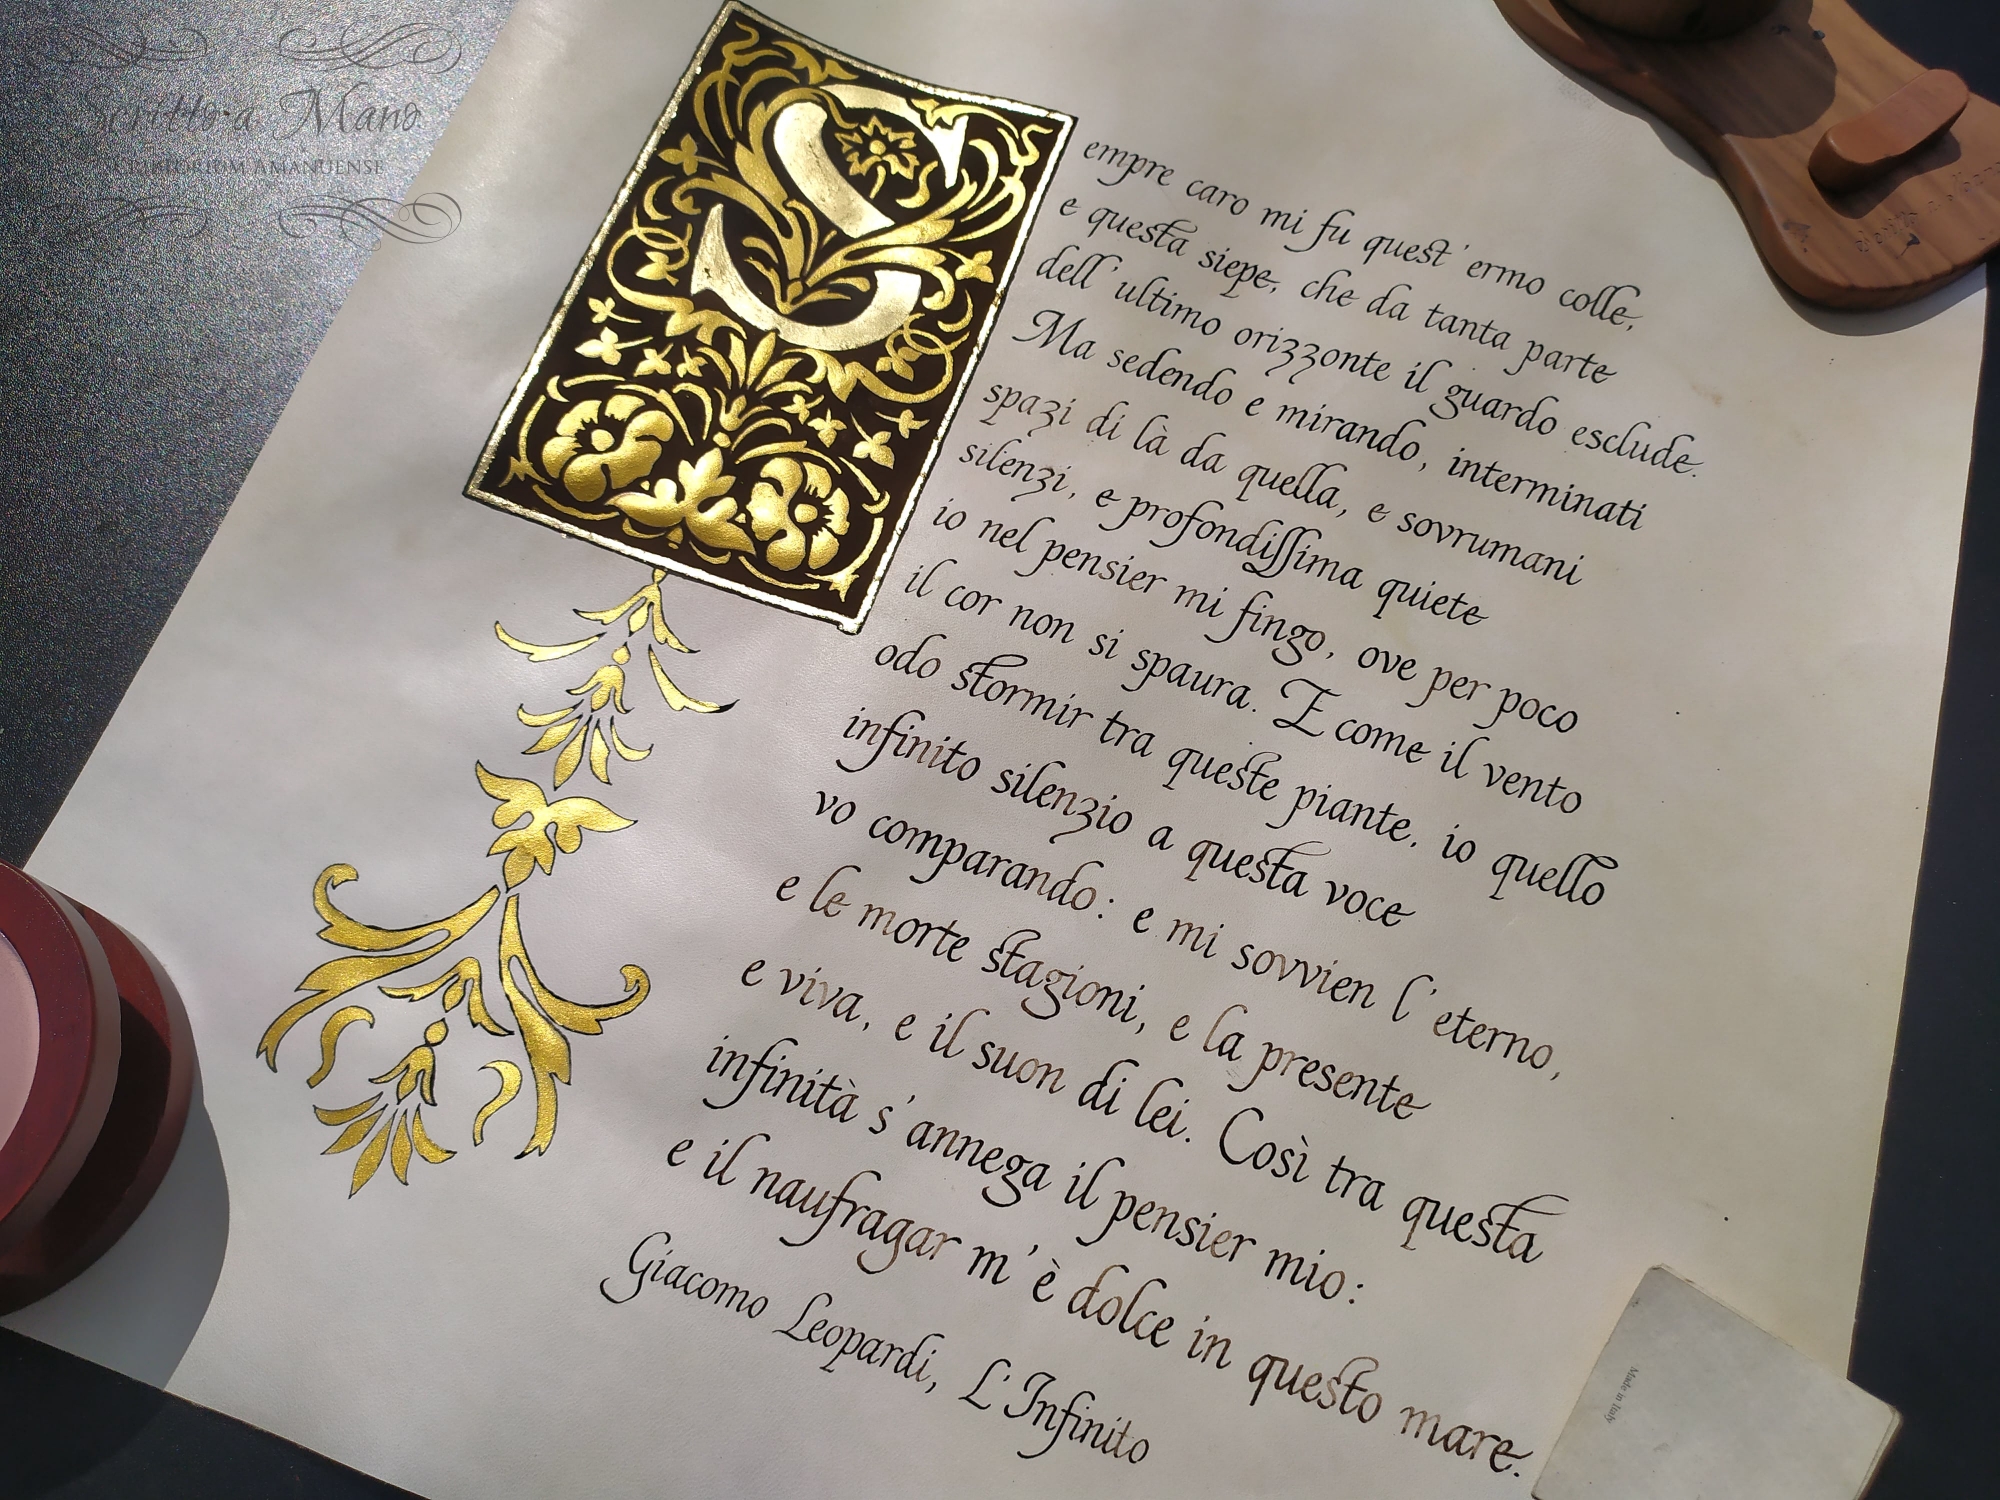 Scritto a Mano
Scriptorium Amanuense
Sempre caro mi fu quest'ermo colle,
e questa siepe, che da tanta parte
dell'ultimo orizzonte il guardo esclude.
Ma sedendo e mirando, interminati
spazi di là da quella, e sovrumani
silenzi, e profondissima quiete
io nel pensier mi fingo, ove per poco
il cor non si spaura. E come il vento
odo stormir tra queste piante, io quello
infinito silenzio a questa voce
vo comparando: e mi sovvien l'eterno,
e le morte stagioni, e la presente
e viva, e il suon di lei. Così tra questa
infinità s'annega il pensier mio:
e il naufragar m'è dolce in questo mare.
Giacomo Leopardi, L'Infinito
Made in Italy